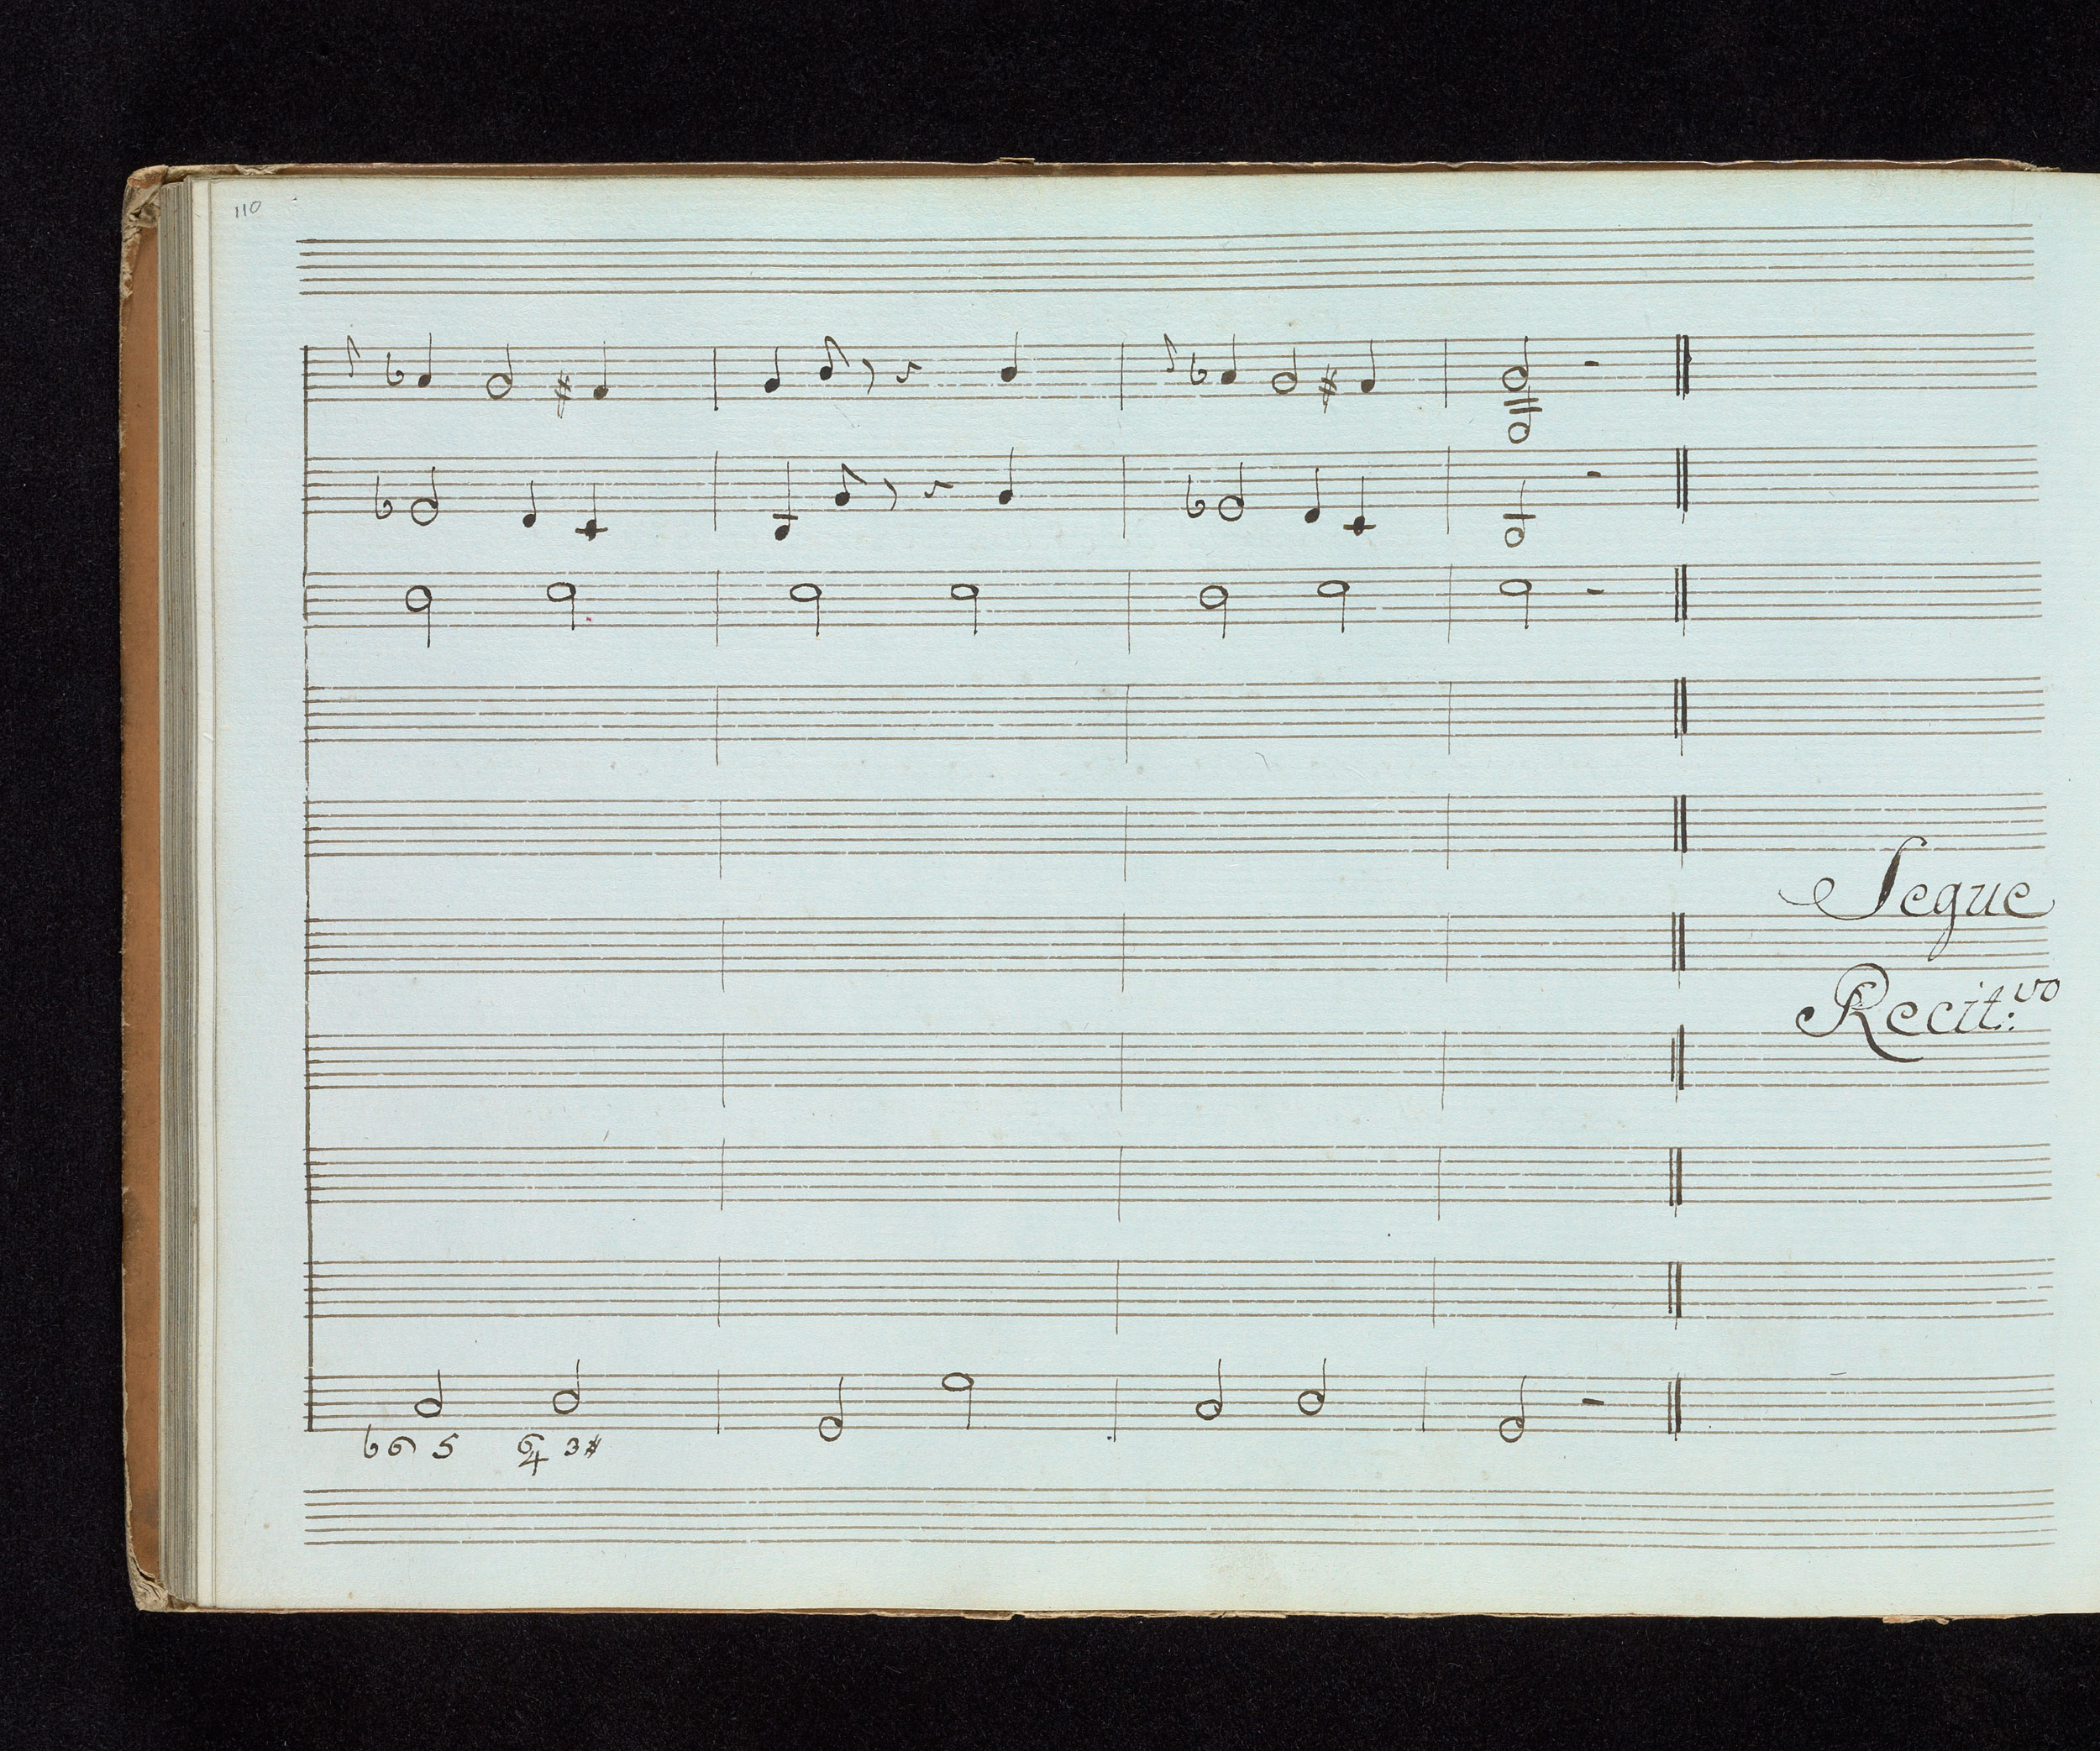 110
Segue
Recit:vo
♭6 5 6 3#
4